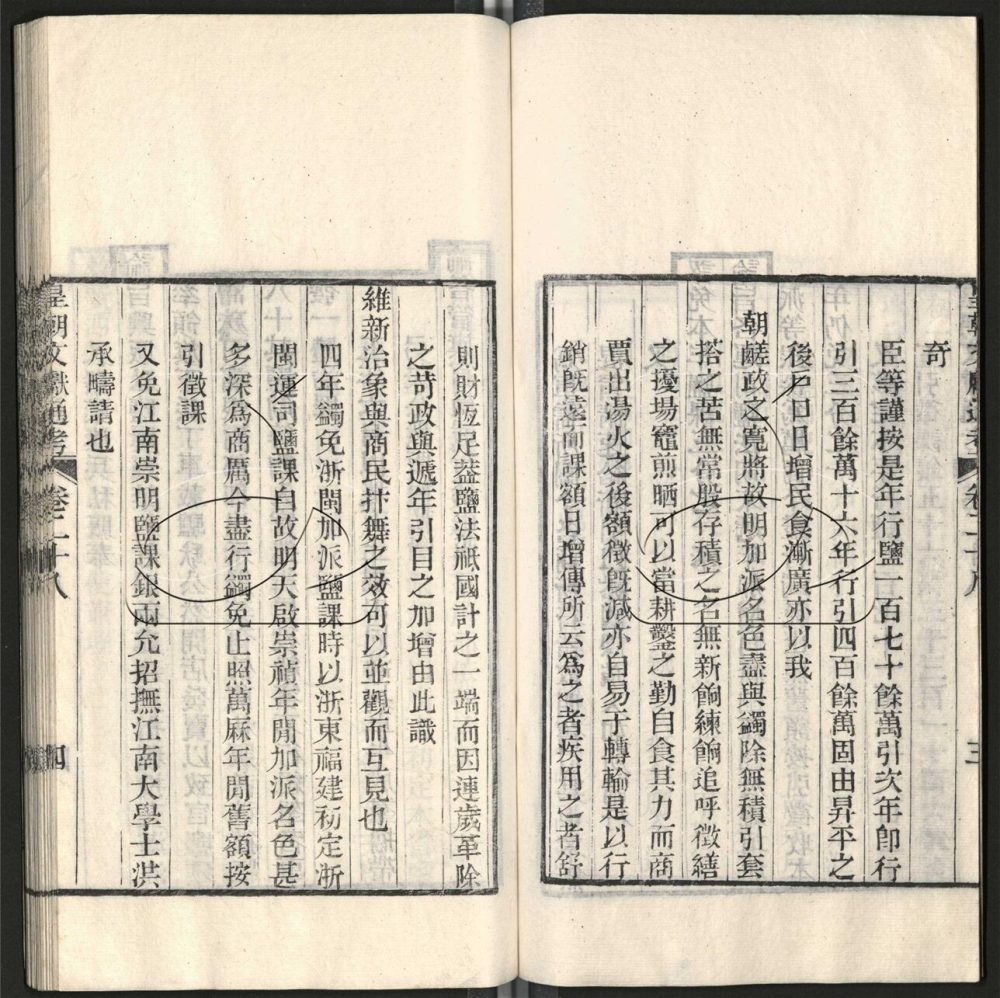 皇朝文獻通考 卷二十八 三
奇
臣等謹按是年行鹽一百七十餘萬引次年卽行
引三百餘萬十六年行引四百餘萬固由昇平之
後戶口日增民食漸廣亦以我
朝鹺政之寬將故明加派名色盡與蠲除無積引套
搭之苦無常股存積之名無新餉練餉追呼徵繕
之擾場竈煎晒可以當耕鑿之勤自食其力而商
賈出湯火之後額徵旣減亦自易于轉輸是以行
銷旣遠而課額日增傳所云爲之者疾用之者舒
則財恆足葢鹽法祗國計之一端而因連歲革除
之苛政與遞年引目之加增由此識
維新治象與商民抃舞之效可以並觀而互見也
四年蠲免浙閩加派鹽課時以浙東福建初定浙
閩運司鹽課自故明天啟崇禎年閒加派名色甚
多深爲商厲今盡行蠲免止照萬厤年閒舊額按
引徵課
又免江南崇明鹽課銀兩允招撫江南大學士洪
承疇請也
皇朝文獻通考 卷二十八 四